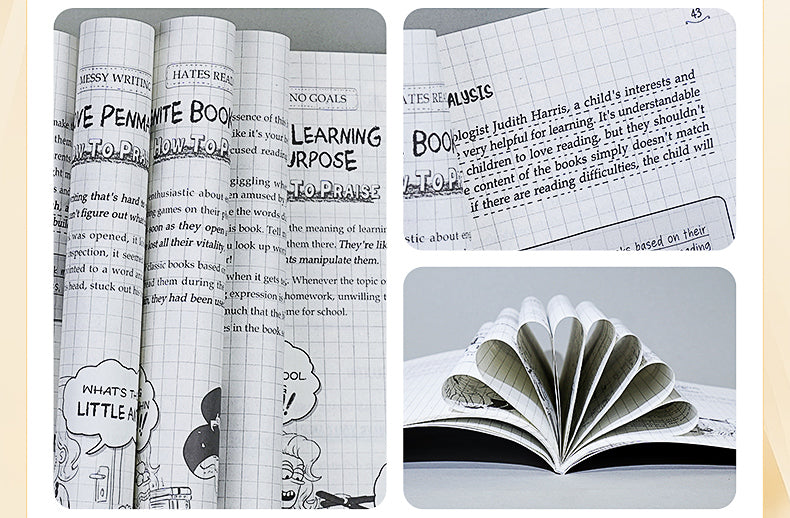 MESSY WRITING
HOW TO PRA
ting that's hard
n't figure out what
was opened, it
spection, it seemed
nted to a word a
s head, stuck out his
WHAT'S T
LITTLE A
HATES REA
NITE BOO
HOW TO P
nthusiastic about
ng games on their
soon as they open
lost all their vitality
classic books based
ad them during the
in, they had been use
ssence of this
ike it's your
cused reading
giggling wh
en amused by
e the words
is book. Tell
u look up wor
when it gets
expression is
much that the
s in the book
NO GOALS
LEARNING
URPOSE
TO PRAISE
the meaning of learnin
them there. They're lik
ts manipulate them.
Whenever the topic o
homework, unwilling t
me for school.
OOL
!!
43
ALYSIS
ologist Judith Harris, a child's interests and
very helpful for learning. It's understandable
children to love reading, but they shouldn't
e content of the books simply doesn't match
if there are reading difficulties, the child will
ks based on their
reading
ATES REA
BOO
tic about